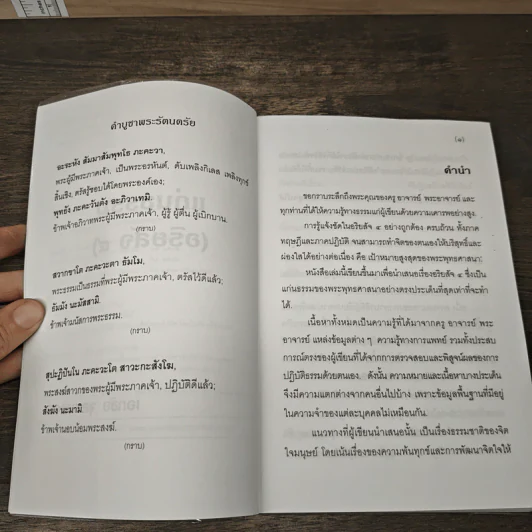 คำบูชาพระรัตนตรัย
อะระหัง สัมมาสัมพุทโธ ภะคะวา,
พระผู้มีพระภาคเจ้า, เป็นพระอรหันต์, ดับเพลิงกิเลส เพลิงทุกข์
สิ้นเชิง, ตรัสรู้ชอบได้โดยพระองค์เอง;
พุทธัง ภะคะวันตัง อะภิวาเทมิ.
ข้าพเจ้าอภิวาทพระผู้มีพระภาคเจ้า, ผู้รู้ ผู้ตื่น ผู้เบิกบาน.
(กราบ)
สวากขาโต ภะคะวะตา ธัมโม,
พระธรรมเป็นธรรมที่พระผู้มีพระภาคเจ้า, ตรัสไว้ดีแล้ว;
ธัมมัง นะมัสสามิ.
ข้าพเจ้านมัสการพระธรรม.
(กราบ)
สุปะฏิปันโน ภะคะวะโต สาวะกะสังโฆ,
พระสงฆ์สาวกของพระผู้มีพระภาคเจ้า, ปฏิบัติดีแล้ว;
สังฆัง นะมามิ
ข้าพเจ้านอบน้อมพระสงฆ์.
(กราบ)
(๑)
คำนำ
ขอกราบระลึกถึงพระคุณของครู อาจารย์ พระอาจารย์ และ
ทุกท่านที่ได้ให้ความรู้ทางธรรมแก่ผู้เขียนด้วยความเคารพอย่างสูง.
การรู้แจ้งชัดในอริยสัจ ๔ อย่างถูกต้อง ครบถ้วน ทั้งภาค
ทฤษฎีและภาคปฏิบัติ จนสามารถทำจิตของตนเองให้บริสุทธิ์และ
ผ่องใสได้อย่างต่อเนื่อง คือ เป้าหมายสูงสุดของพระพุทธศาสนา
หนังสือเล่มนี้เขียนขึ้นมาเพื่อนำเสนอเรื่องอริยสัจ ๔ ซึ่งเป็น
แก่นธรรมของพระพุทธศาสนาอย่างตรงประเด็นที่สุดเท่าที่จะทำ
ได้.
เนื้อหาทั้งหมดเป็นความรู้ที่ได้มาจากครู อาจารย์ พระ
อาจารย์ แหล่งข้อมูลต่าง ๆ ความรู้ทางการแพทย์ รวมทั้งประสบ
การณ์ตรงของผู้เขียนที่ได้จากการตรวจสอบและพิสูจน์ผลของการ
ปฏิบัติธรรมด้วยตนเอง. ดังนั้น ความหมายและเนื้อหาบางประเด็น
จึงมีความแตกต่างจากคนอื่นไปบ้าง เพราะข้อมูลพื้นฐานที่มีอยู่
ในความจำของแต่ละบุคคลไม่เหมือนกัน.
แนวทางที่ผู้เขียนนำเสนอนั้น เป็นเรื่องธรรมชาติของจิต
ใจมนุษย์ โดยเน้นเรื่องของความพ้นทุกข์และการพัฒนาจิตใจให้